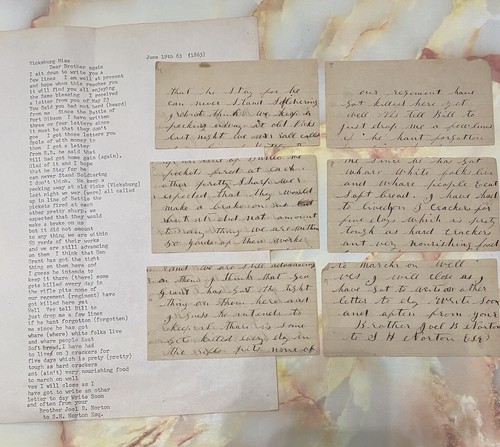 Vicksburg Miss
June 19th 63 (1863)
Dear Brother again
I sit down to write you a
few lines I am well at present
and hope when this reaches you
it will find you all enjoying
the same blessing I received
a letter from you of May 23
You said you had not herd (heard)
from me since the battle of
Port Gibson I have written
three or four letters since
it must be that they don't
go I got those letters you
spoke of with money in
when I got a letter
from S.H. he said that
Bill had got home again (again),
Glad of it and I hope
that he Stay for he
can never Stand Soldering
I don't think. We keep
pecking away at old Vicks (Vicksburg)
last night we war (were) all called
up in line of Battle the
pickets fired at each
other pretty sharp, we
expected that they would
make a brake on us
but it did not amount
to any thing we are within
50 yards of their works
and we are still advancing
on them I think that Gen
Grant has got the right
thing on them here and
I guess he intends to
keep it thare (there) some
gets killed every day in
the rifle pits none of
our regement (regiment) have
got killed here yet
Well Yes tell Bill to
just drop me a few lines
if he hant forgotten (forgotten)
me since he has got
whare (where) white folks live
and whare people beat
Soft bread, I have had
to lived on 3 crackers for
five days which is prety (pretty)
tough as hard crackers
ant (ain't) very nourishing food
to march on well
yes I will close as I
have got to write an other
letter to day Write Soon
and often from your
Brother Joel B. Norton
to S.H. Norton Esq.
that he Stay for he
can never Stand Soldering
I dont think We keep
pecking away at old Vicks
last night we war all called
pickets fired at each
other pretty sharp we
expected that they would
make a brake on us
but it did not amount
to any thing we are within
50 yards of there works
and we are still advancing
on them I think that Gen
Grant has got the right
thing on them here and
I guess he intends to
keep it thare is some
gets killed every day in
the rifle pits none of
our regement have
got killed here yet
Well Yes tell Bill to
just drop me a few lines
if he hant forgotten
me since he has got
whare White folks live
and whare people beat
Soft bread. I have had
to lived on 3 crackers for
five days which is prety
tough as hard crackers
ant very nourishing food
to march on Well
yes I will close as I
have got to write an other
letter to day Write Soon
and often from your
Brother Joel B Norton
to S H Norton Esq